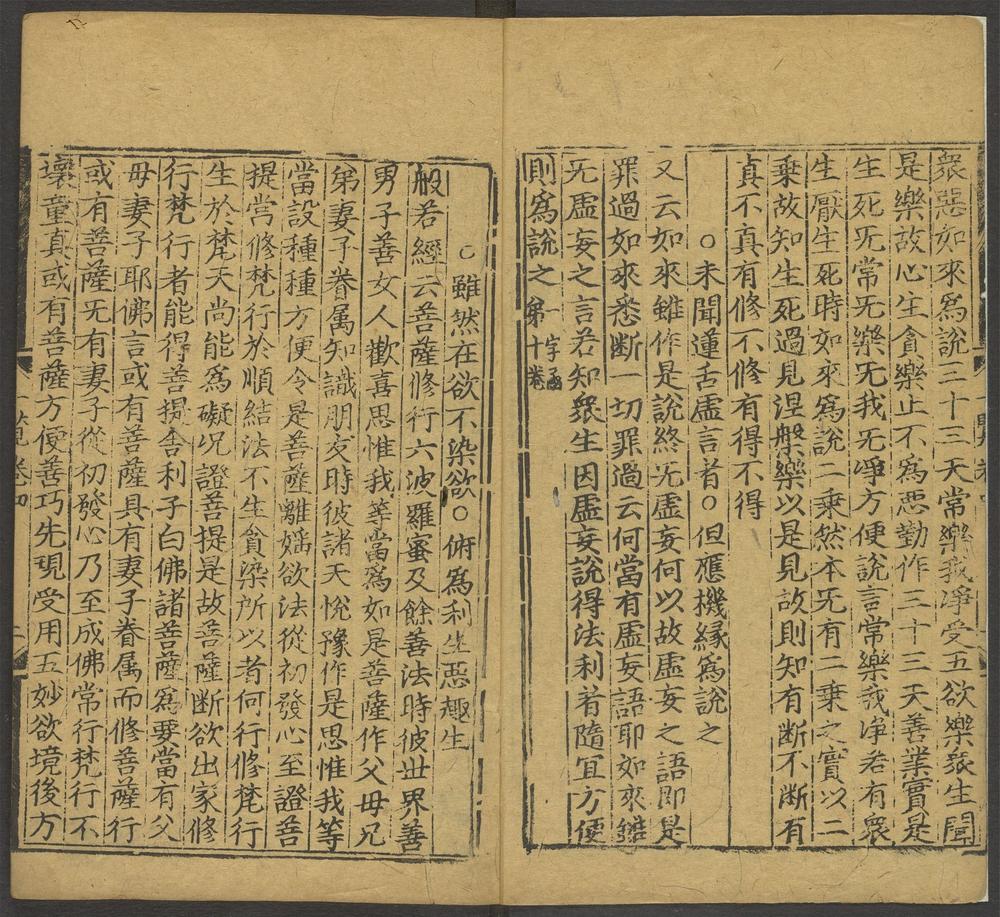 衆惡如來爲說三十三天常樂我淨受五欲樂衆生聞
是樂故心生貪樂止不爲惡勤作三十三天善業實是
生死旡常旡樂旡我旡淨方便說言常樂我淨若有衆
生厭生死時如來爲說二乗然本旡有二乗之實以二
乗故知生死過見涅槃樂以是見故則知有斷不斷有
真不真有修不修有得不得
○未聞蓮舌虛言者○但應機緣爲說之
又云如來雖作是說終旡虛妄何以故虛妄之語即是
罪過如來悉斷一切罪過云何當有虛妄語耶如來雖
旡虛妄之言若知衆生因虛妄說得法利者隨宜方便
則爲說之
字函
第十卷
○雖然在欲不染欲○俯爲利生惡趣生
般若經云菩薩修行六波羅蜜及餘善法時彼世界善
男子善女人歡喜思惟我等當爲如是菩薩作父母兄
弟妻子眷属知識朋友時彼諸天悅豫作是思惟我等
當設種種方便令是菩薩離婬欲法從初發心至證菩
提常修梵行於順結法不生貪染所以者何行修梵行
生於梵天尚能爲礙况證菩提是故菩薩斷欲出家修
行梵行者能得菩提舍利子白佛諸菩薩爲要當有父
母妻子耶佛言或有菩薩具有妻子眷属而修菩薩行
或有菩薩旡有妻子從初發心乃至成佛常行梵行不
壞童真或有菩薩方便善巧先現受用五妙欲境後方
卷四